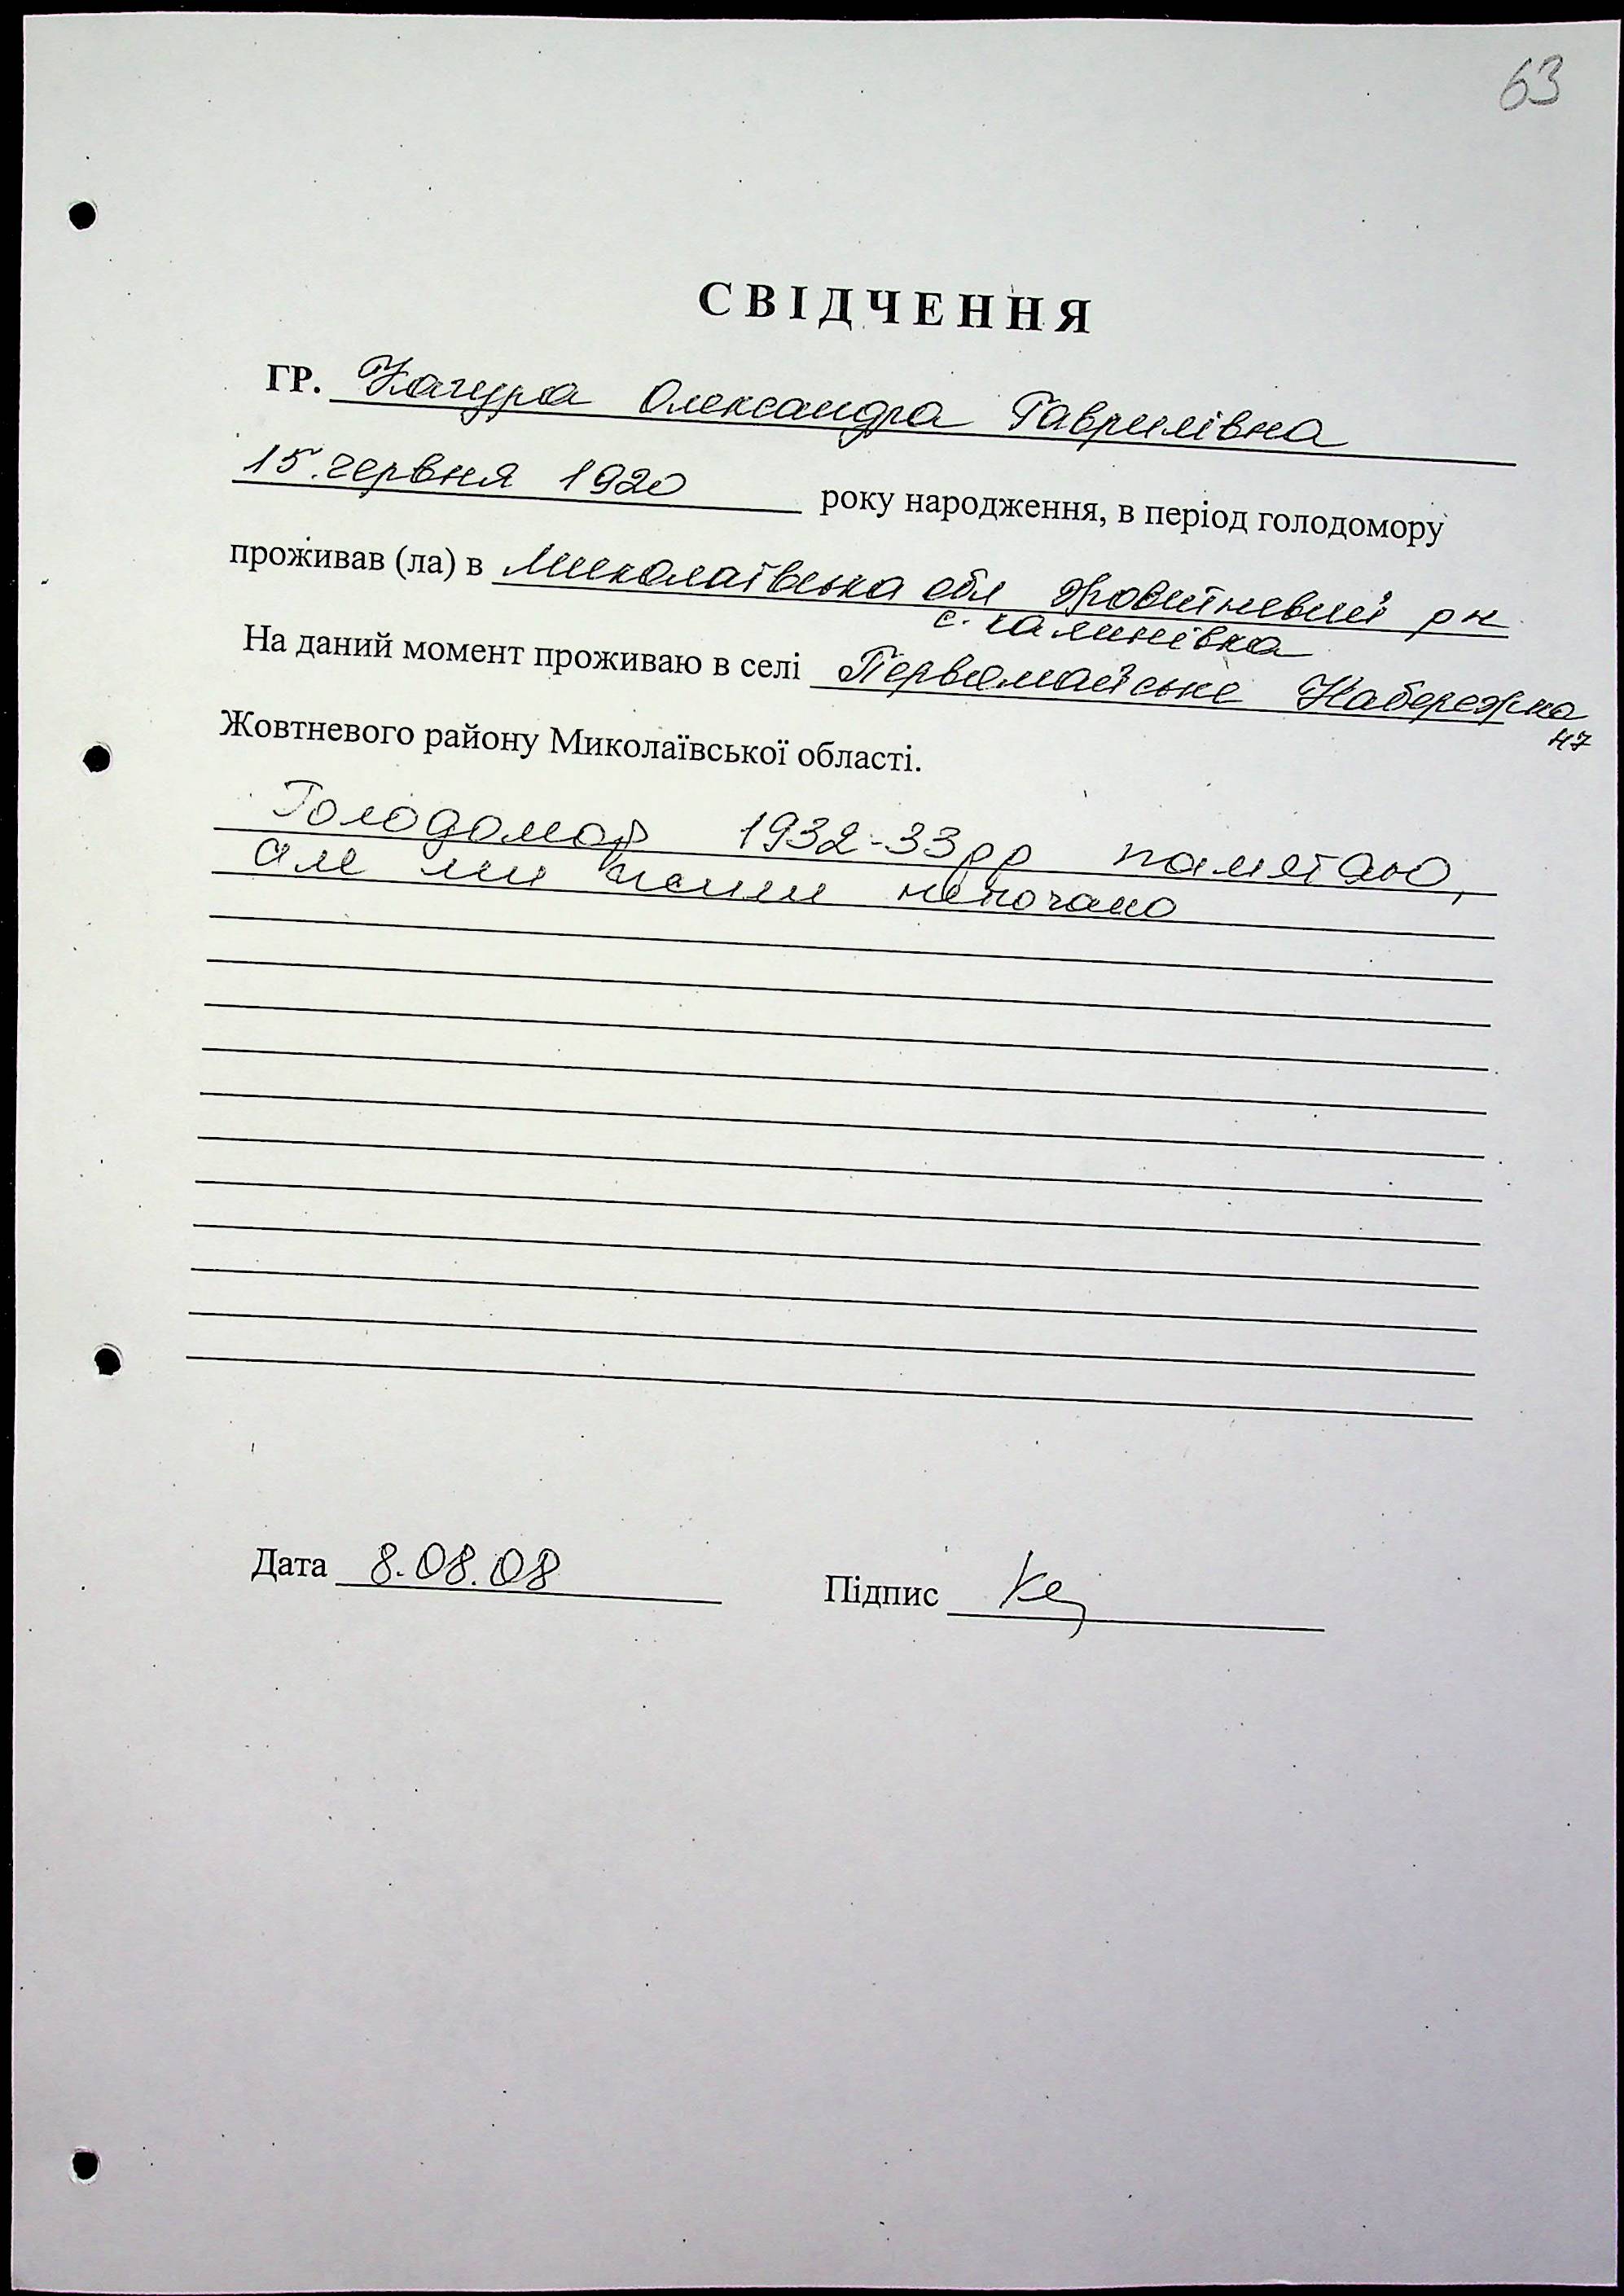 63
СВІДЧЕННЯ
ГР. Кацура Олександра Гаврилівна
15.червня 1920 року народження, в період голодомору
проживав (ла) в Миколаївська обл Жовтневий рн
с. калинівка
На даний момент проживаю в селі Первомайське Набережна
47
Жовтневого району Миколаївської області.
Голодомор 1932-33рр паметаю,
але ми жили непогано
Дата 8.08.08
Підпис